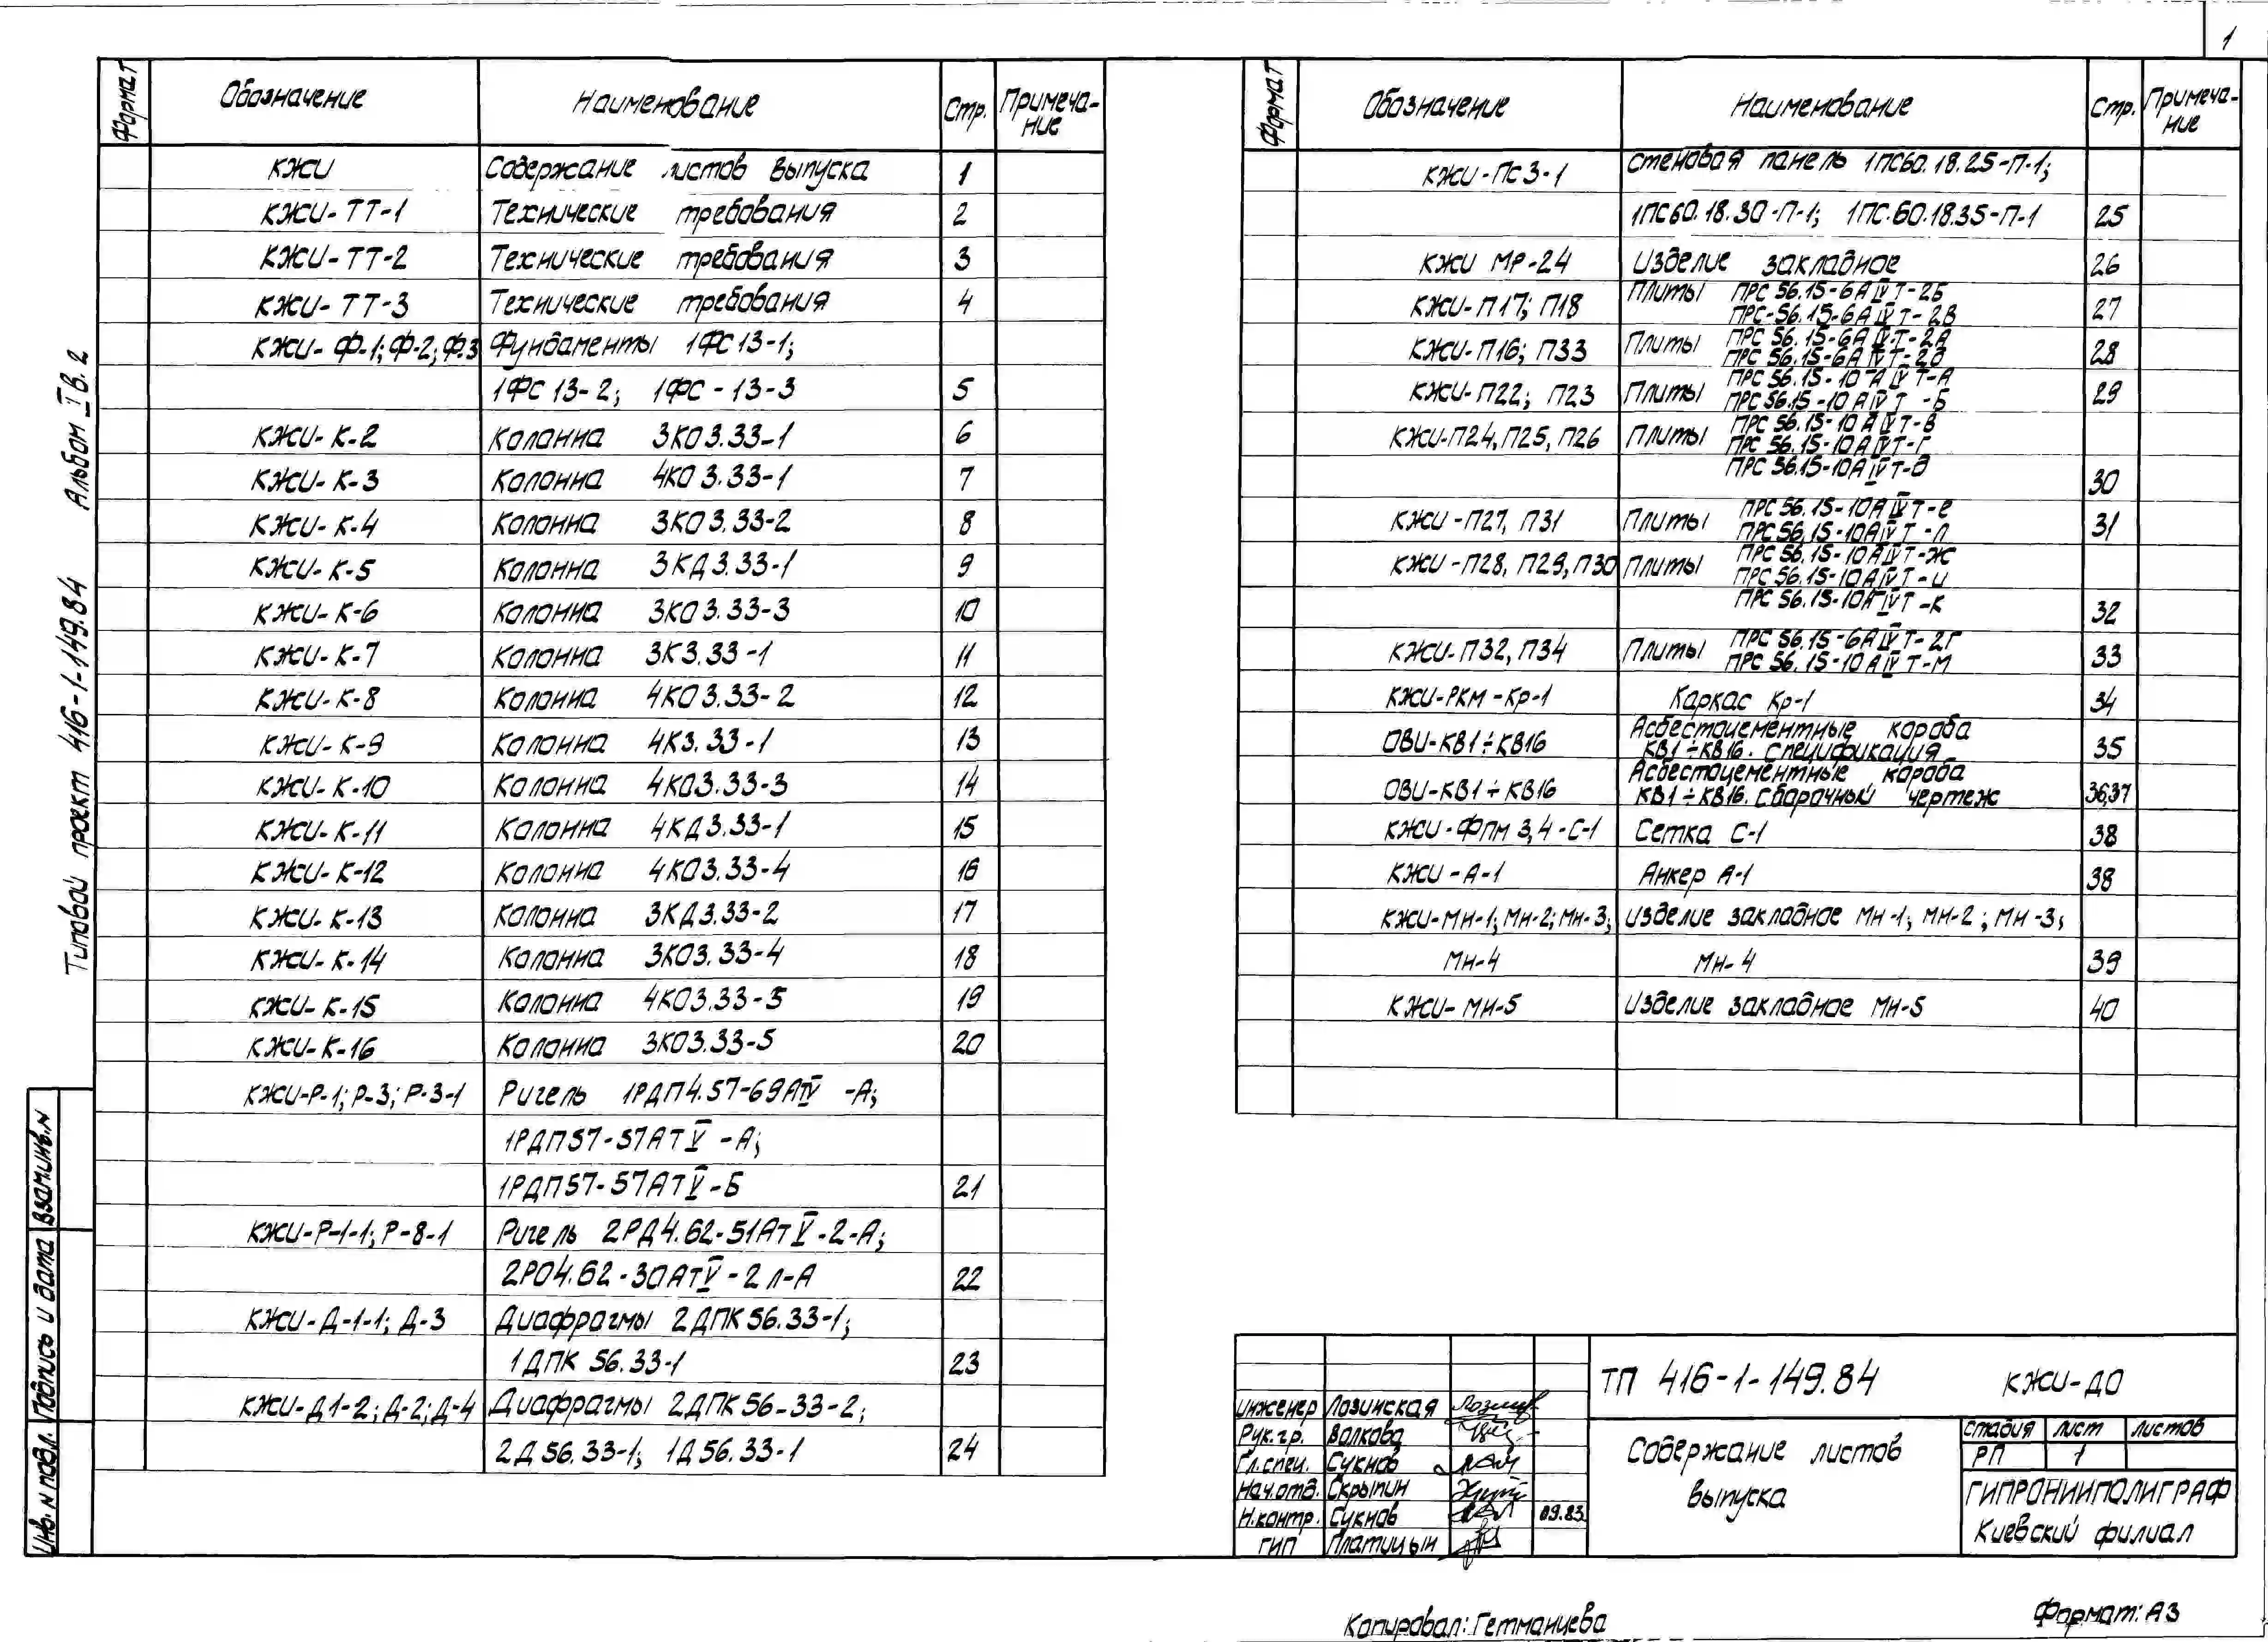 1
Формат Обозначение Наименование Стр. Примеча-
ние
КЖИ Содержание листов выпуска 1
КЖИ-ТТ-1 Технические требования 2
КЖИ-ТТ-2 Технические требования 3
КЖИ-ТТ-3 Технические требования 4
КЖИ-Ф-1; Ф-2; Ф.3 Фундаменты 1ФС13-1;
1ФС13-2; 1ФС-13-3 5
КЖИ-К-2 Колонна 3КО3.33-1 6
КЖИ-К-3 Колонна 4КО3.33-1 7
КЖИ-К-4 Колонна 3КО3.33-2 8
КЖИ-К-5 Колонна 3КД3.33-1 9
КЖИ-К-6 Колонна 3КО3.33-3 10
КЖИ-К-7 Колонна 3К3.33-1 11
КЖИ-К-8 Колонна 4КО3.33-2 12
КЖИ-К-9 Колонна 4К3.33-1 13
КЖИ-К-10 Колонна 4КО3.33-3 14
КЖИ-К-11 Колонна 4КД3.33-1 15
КЖИ-К-12 Колонна 4КО3.33-4 16
КЖИ-К-13 Колонна 3КД3.33-2 17
КЖИ-К-14 Колонна 3КО3.33-4 18
КЖИ-К-15 Колонна 4КО3.33-5 19
КЖИ-К-16 Колонна 3КО3.33-5 20
КЖИ-Р-1; Р-3; Р-3-1 Ригель 1РДП4.57-69АТIV-А;
1РДП57-57АТV-А;
1РДП57-57АТV-Б 21
КЖИ-Р-1-1; Р-8-1 Ригель 2РД4.62-51АтV-2-А;
2РО4.62-30АтV-2л-А 22
КЖИ-Д-1-1; Д-3 Диафрагмы 2ДПК56.33-1;
1ДПК 56.33-1 23
КЖИ-Д1-2; Д-2; Д-4 Диафрагмы 2ДПК56-33-2;
2Д56.33-1; 1Д56.33-1 24
Формат Обозначение Наименование Стр. Примеча-
ние
КЖИ-ПС3-1 Стеновая панель 1ПС60.18.25-П-1;
1ПС60.18.30-П-1; 1ПС.60.18.35-П-1 25
КЖИ МР-24 Изделие закладное 26
КЖИ-П17; П18 Плиты ПРС56.15-6АIVТ-2Б
ПРС-56.15-6АIVТ-2В 27
КЖИ-П16; П33 Плиты ПРС56.15-6АIVТ-2А
ПРС56.15-6АIVТ-2Д 28
КЖИ-П22; П23 Плиты ПРС56.15-10АIVТ-А
ПРС56.15-10АIVТ-Б 29
КЖИ-П24, П25, П26 Плиты ПРС56.15-10АIVТ-В
ПРС56.15-10АIVТ-Г
ПРС56.15-10АIVТ-д 30
КЖИ-П27, П31 Плиты ПРС56.15-10АIVТ-е
ПРС56.15-10АIVТ-Л 31
КЖИ-П28, П29, П30 Плиты ПРС56.15-10АIVТ-Ж
ПРС56.15-10АIVТ-и
ПРС56.15-10АIVТ-К 32
КЖИ-П32, П34 Плиты ПРС56.15-6АIVТ-2Г
ПРС56.15-10АIVТ-М 33
КЖИ-РКМ-Кр-1 Каркас Кр-1 34
ОВИ-КВ1÷КВ16 Асбестоцементные короба
КВ1÷КВ16. Спецификация 35
ОВИ-КВ1÷КВ16 Асбестоцементные короба
КВ1÷КВ16. Сборочный чертеж 36,37
КЖИ-ФПМ 3,4-С-1 Сетка С-1 38
КЖИ-А-1 Анкер А-1 38
КЖИ-МН-1; МН-2; МН-3; Изделие закладное МН-1; МН-2; МН-3;
МН-4 МН-4 39
КЖИ-МН-5 Изделие закладное МН-5 40
Типовой проект 416-1-149.84 Альбом IV в.2
Инв. N подл. Подпись и дата Взам.инв.N
инженер Лозинская
Рук.гр. Волкова
Гл.спец. Сукнов
Нач.отд. Скрыпин
Н.контр. Сукнов 09.83
ГИП Платицын
ТП 416-1-149.84 КЖИ-ДО
Содержание листов
выпуска
стадия лист листов
РП 1
ГИПРОНИИПОЛИГРАФ
Киевский филиал
Копировал: Гетманцева
Формат: А3